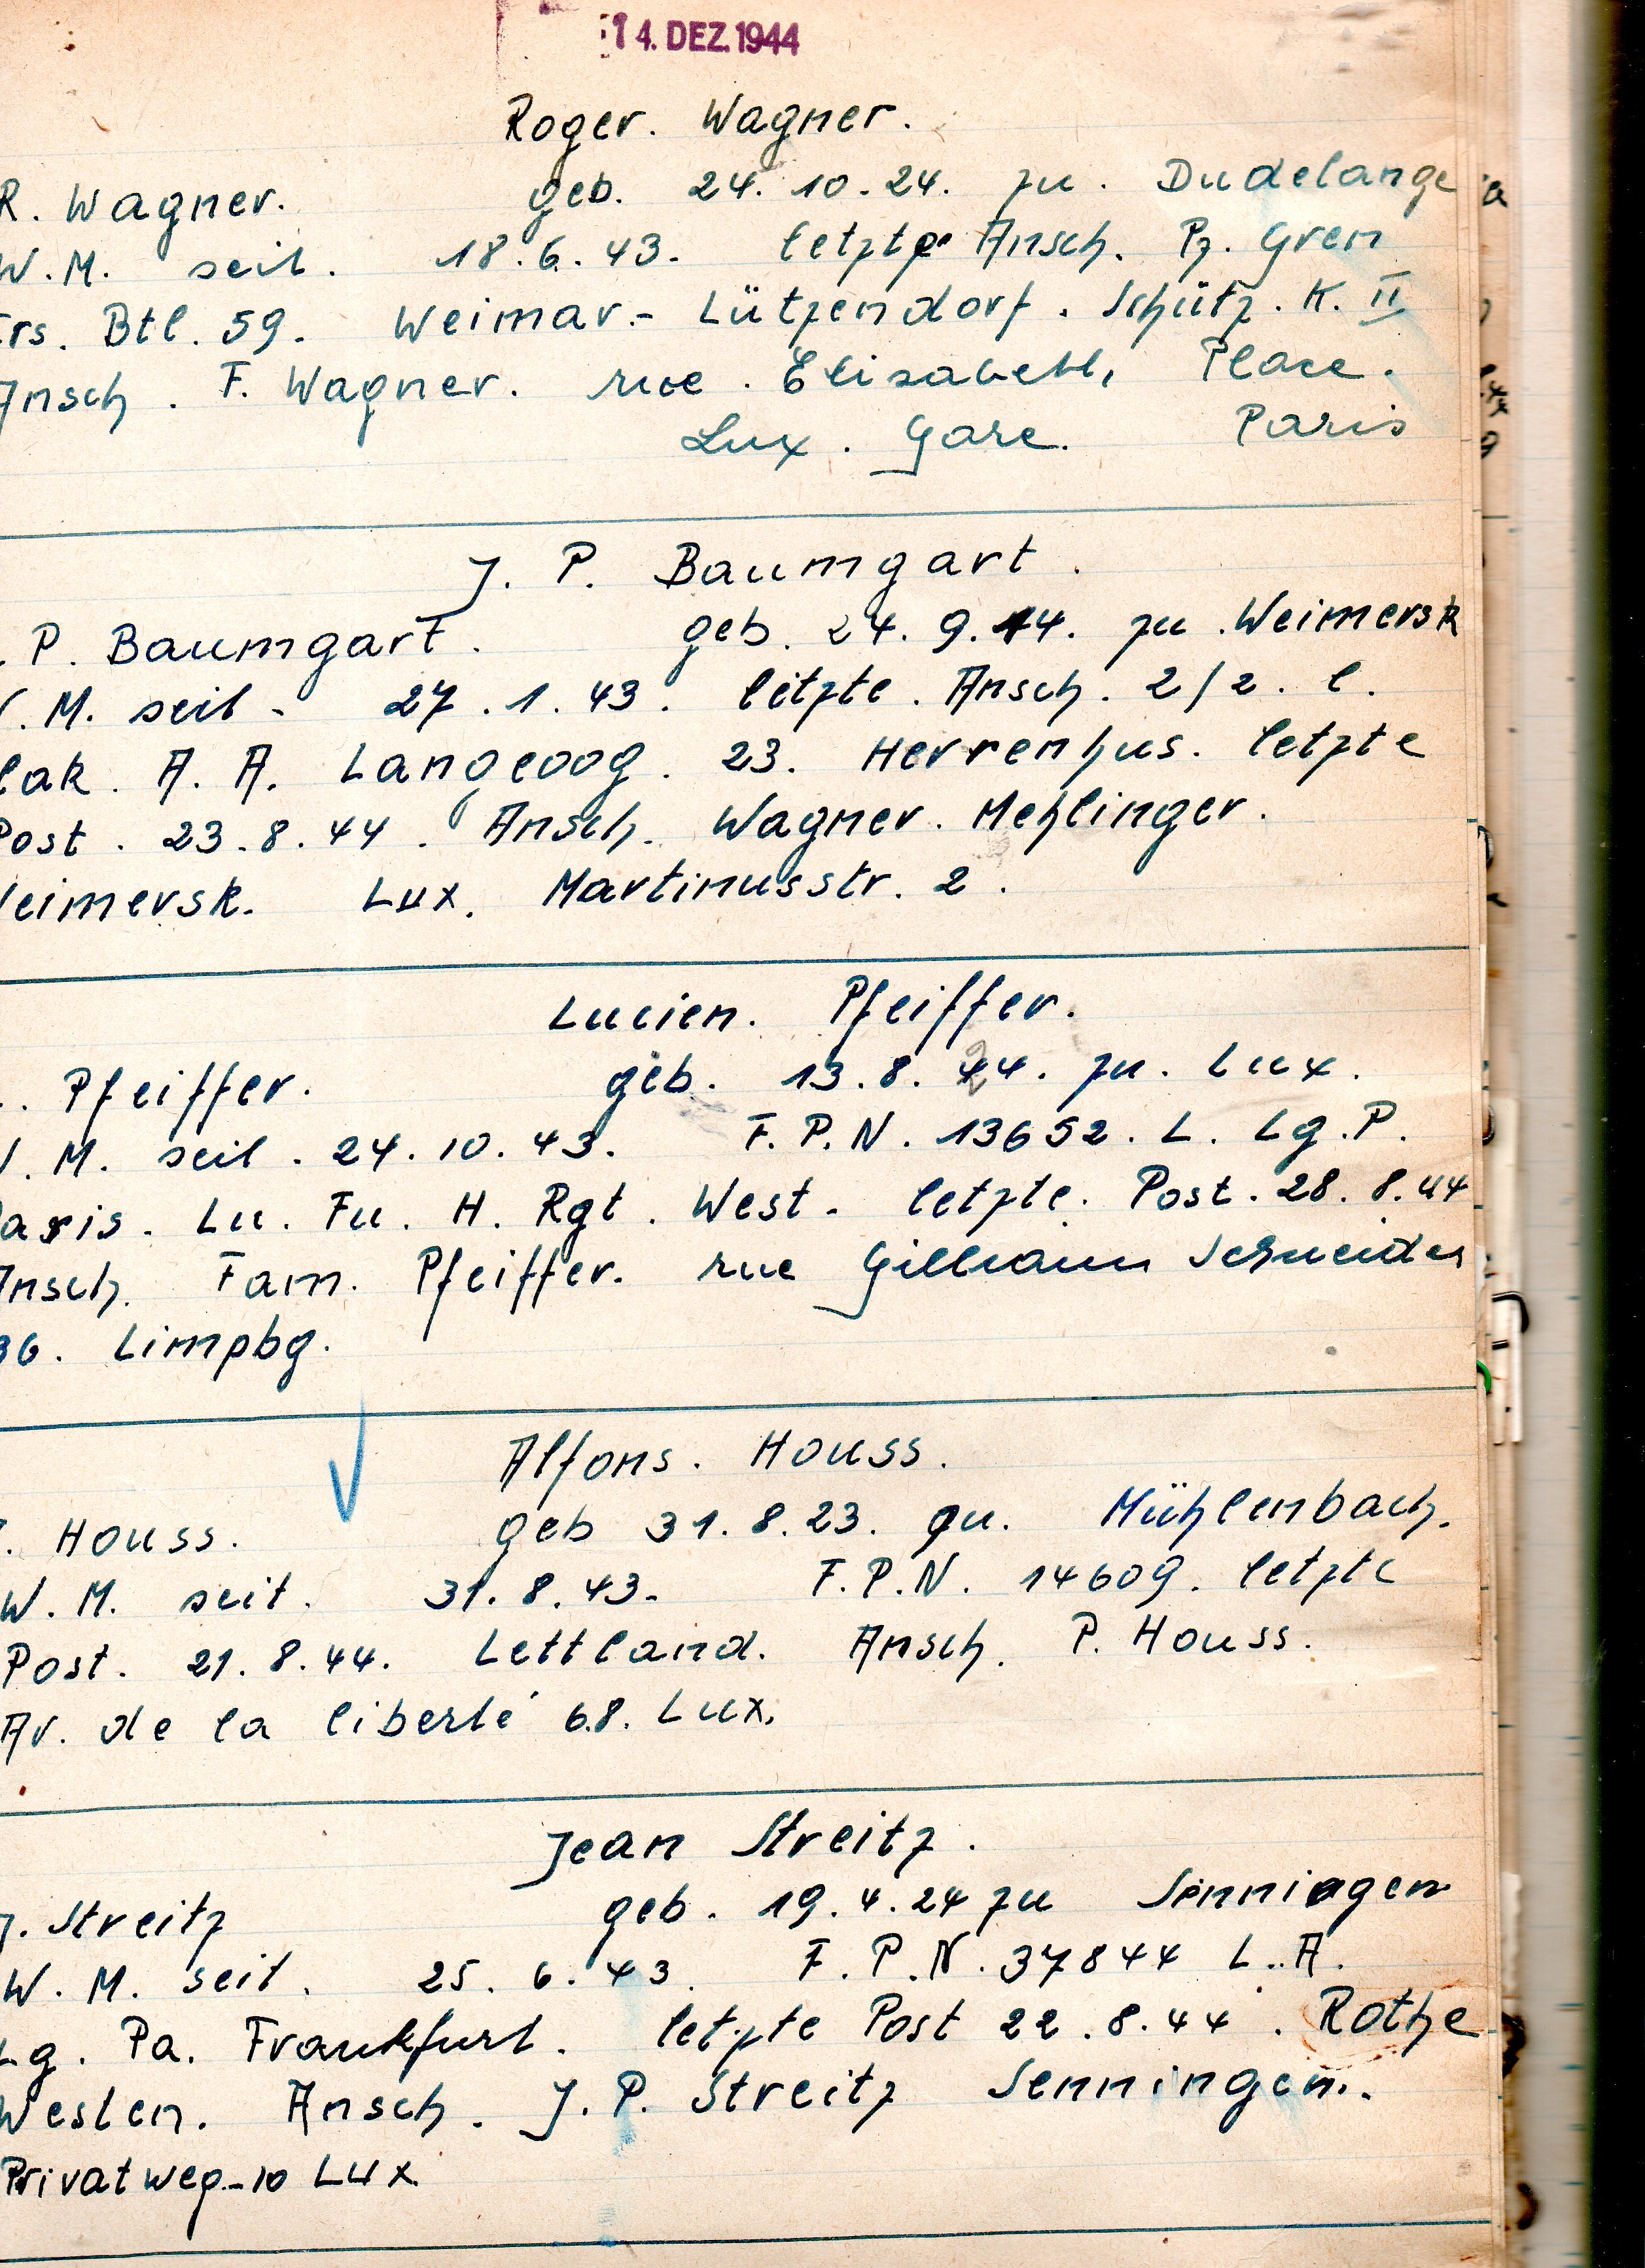 14. DEZ. 1944
Roger. Wagner.
R. Wagner. geb. 24. 10. 24. zu. Dudelange
W.M. seit. 18. 6. 43. letzte Ansch. Pz. Gren
Ers. Btl. 59. Weimar.- Lützendorf. Schütz. K. II
Ansch. F. Wagner. rue. Elisabeth, Place.
Lux. Gare. Paris
J. P. Baumgart.
. P. Baumgart. geb. 24. 9. 14. zu. Weimersk
. M. seit - 27. 1. 43. letzte. Ansch. 2/2. l.
lak. A. A. Langeoog. 23. Herrenhus. letzte
Post. 23. 8. 44. Ansch. Wagner. Mehlinger.
Weimersk. Lux. Martinusstr. 2.
Lucien. Pfeiffer.
. Pfeiffer. geb. 13. 8. 24. zu. Lux.
. M. seit. 24. 10. 43. F. P. N. 13652. L. Lg. P.
aris. Lu. Fu. H. Rgt. West. letzte. Post. 28. 8. 44
Ansch. Fam. Pfeiffer. rue Schneider
36. Limpbg.
Alfons. Houss.
. Houss. geb 31. 8. 23. zu. Mühlenbach.
W. M. seit. 31. 8. 43. F. P. N. 14609. letzte
Post. 21. 8. 44. Lettland. Ansch. P. Houss.
Av. de la liberté 68. Lux.
Jean Streitz.
J. Streitz geb. 19. 4. 24 zu Senningen
W. M. seit. 25. 6. 43. F. P. N. 37844 L. A.
Lg. Pa. Frankfurt. letzte Post 22. 8. 44. Rothe
Westen. Ansch. J. P. Streitz Senningen.
Privatweg-10 Lux